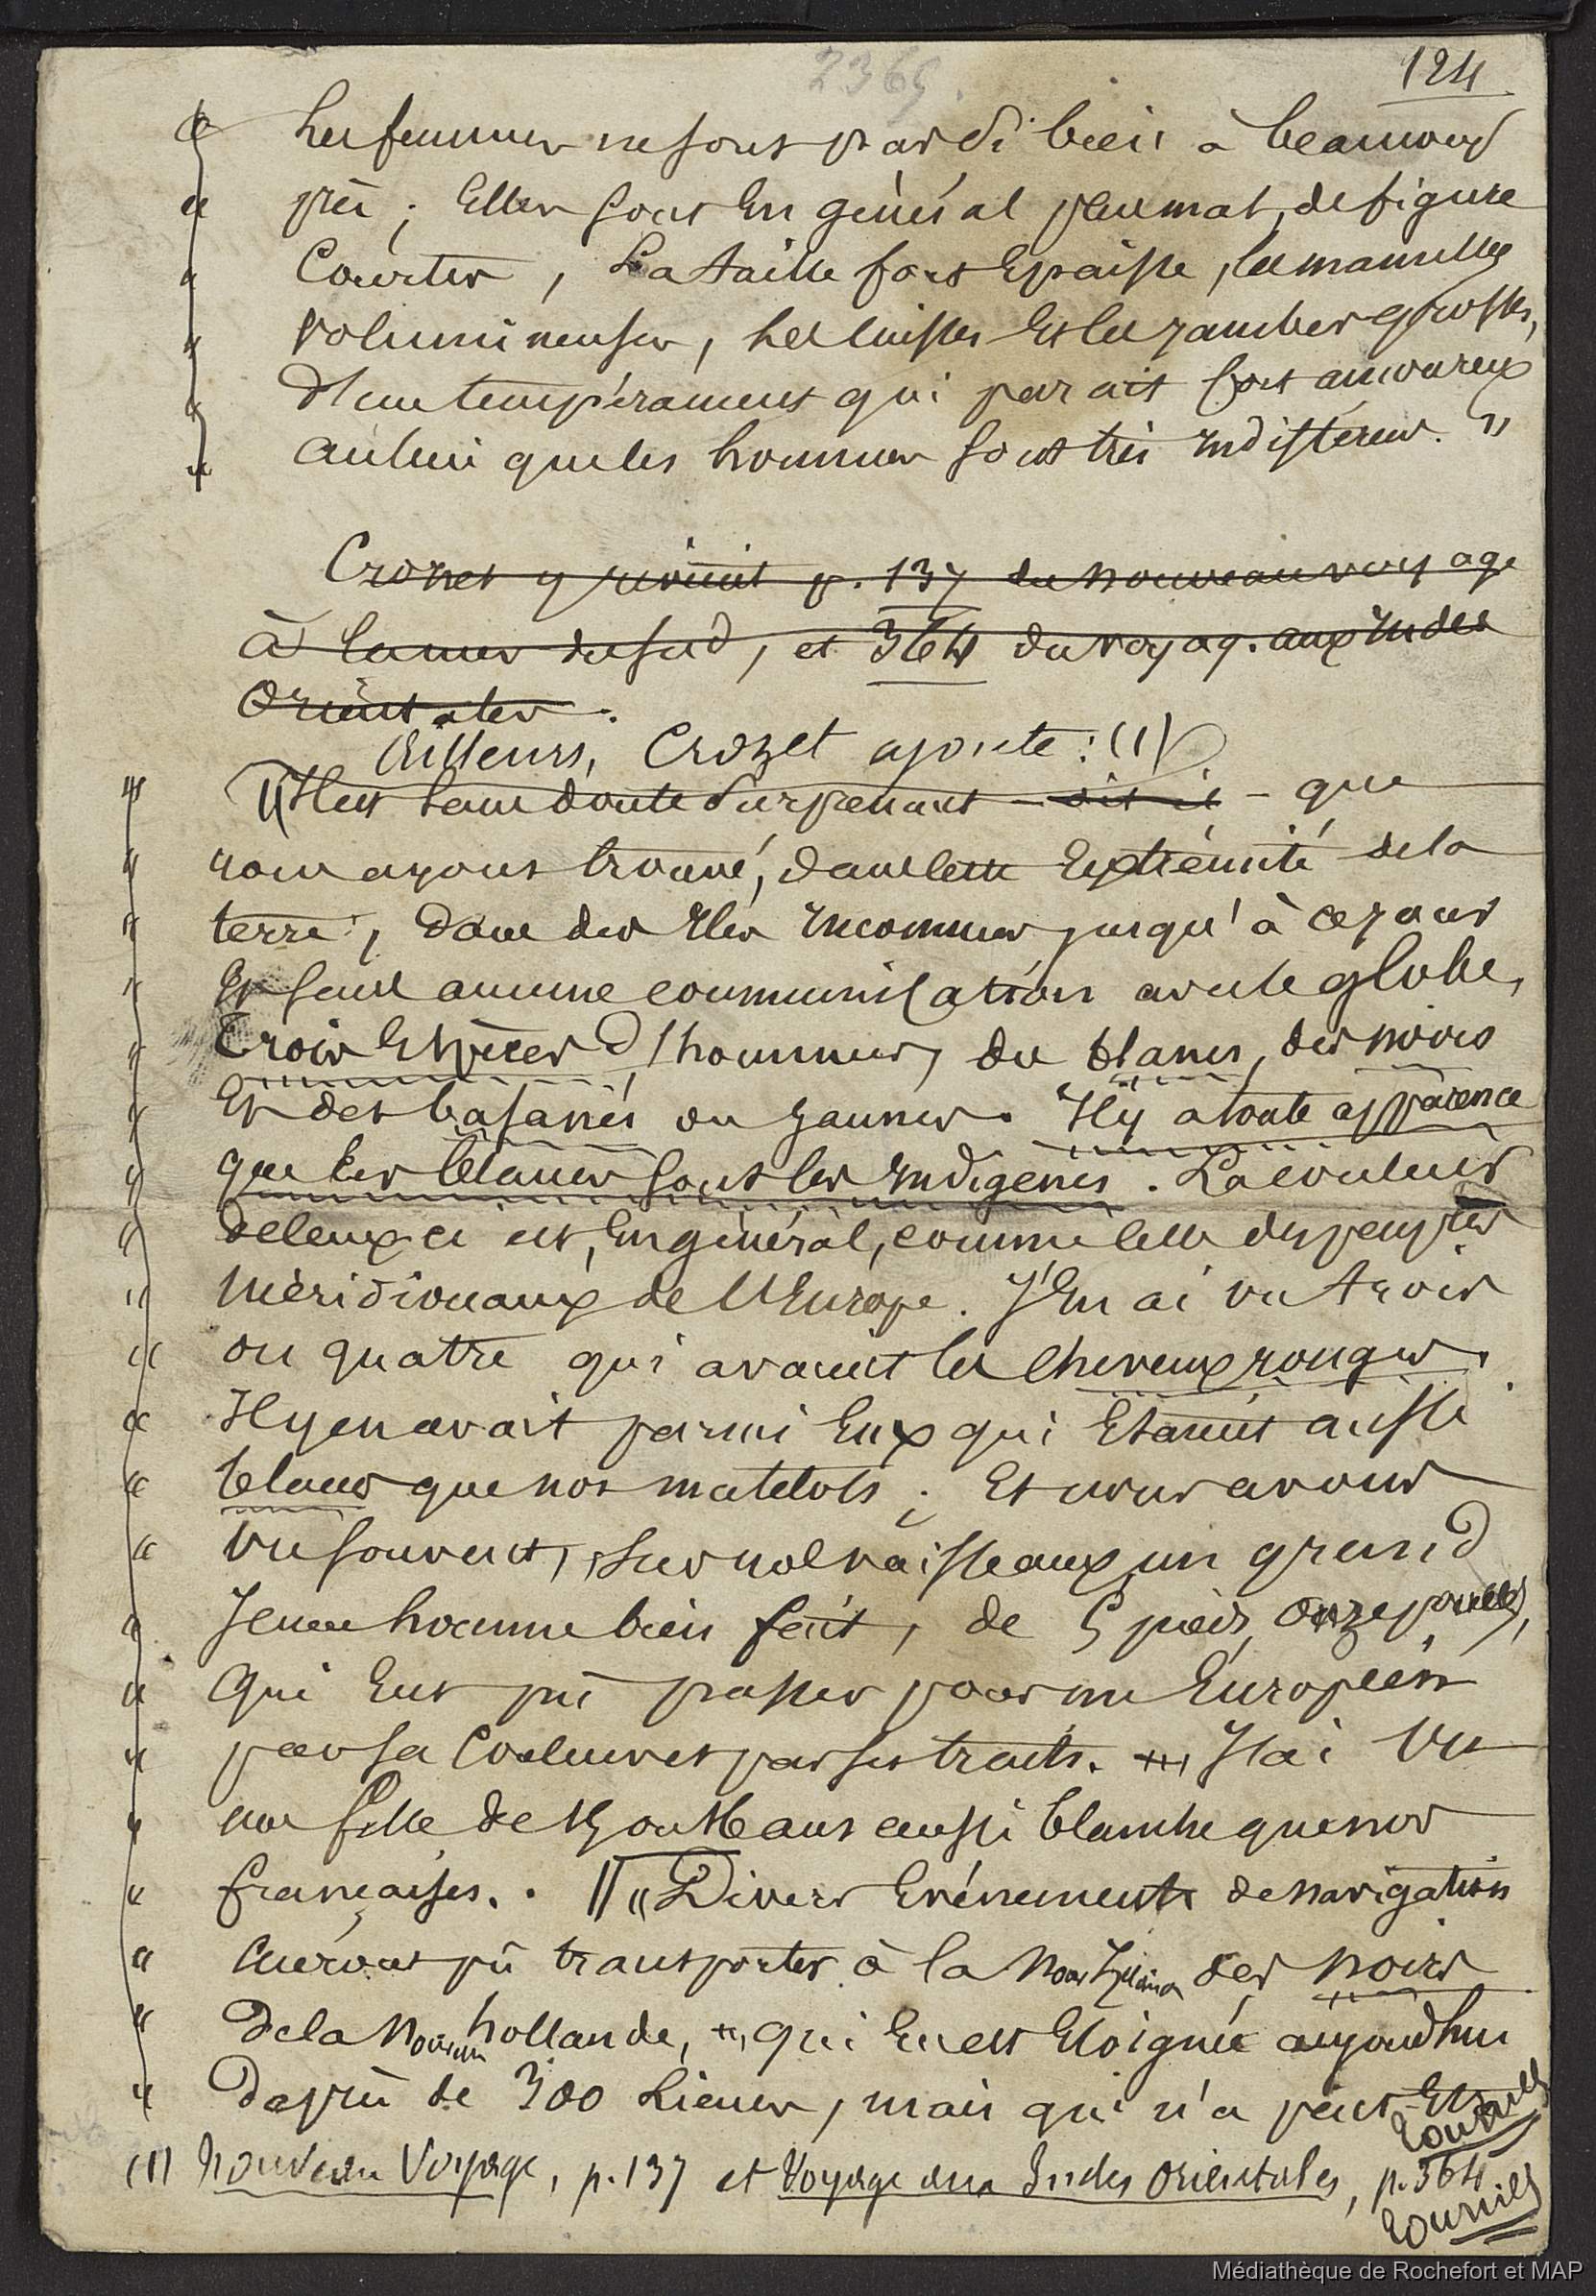 2369.
124
Les femmes ne sont pas si bien à beaucoup
près ; Elles sont En général plus mat, de figure
Courtes, La taille fort Epaisse, les mamelles
Volumineuses, Les cuisses Et les jambes grosses,
d'un tempérament qui parait fort amoureux
au lieu que les hommes sont très indifférens. "
Crozet y revient p. 137 du nouveau voyage
à la mer du sud, et 364 du voyag. aux Indes
Orientales.
Ailleurs, Crozet ajoute : (1)
"Il est sans doute surprenant - dit-il - que
nous ayons trouvé, dans cette Extrémité de la
terre, dans des Iles Inconnues jusqu'à ce jour
Et sans aucune communication avec le globe,
trois Espèces d'hommes, des blancs, des noirs
Et des basanés ou jaunes. Il y a toute apparence
que les blancs sont les Indigènes. La couleur
de ceux-ci est, En général, comme celle des peuples
Méridionaux de l'Europe. J'En ai vu trois
ou quatre qui avaient les cheveux rouges.
Il y en avait parmi Eux qui Etaient aussi
blancs que nos matelots ; Et nous avons
vu souvent, sur nos vaisseaux un grand
Jeune homme bien fait, de 5 pieds onze pouces,
qui Eut pû passer pour un Européen
par sa Couleur et par ses traits. J'ai Vu
une fille de aussi blanche que nos
françaises. . "Divers Evénements de navigation
auront pû transporter à la Nouv Zélande des noirs
de la Nouvelle hollande, qui En est Eloignée aujourd'hui
de près de 300 Lieues, mais qui n'a peut-Etre
tournez
(1) Nouveau Voyage, p. 137 et Voyage aux Indes Orientales, p. 364
tournez
Médiathèque de Rochefort et MAP